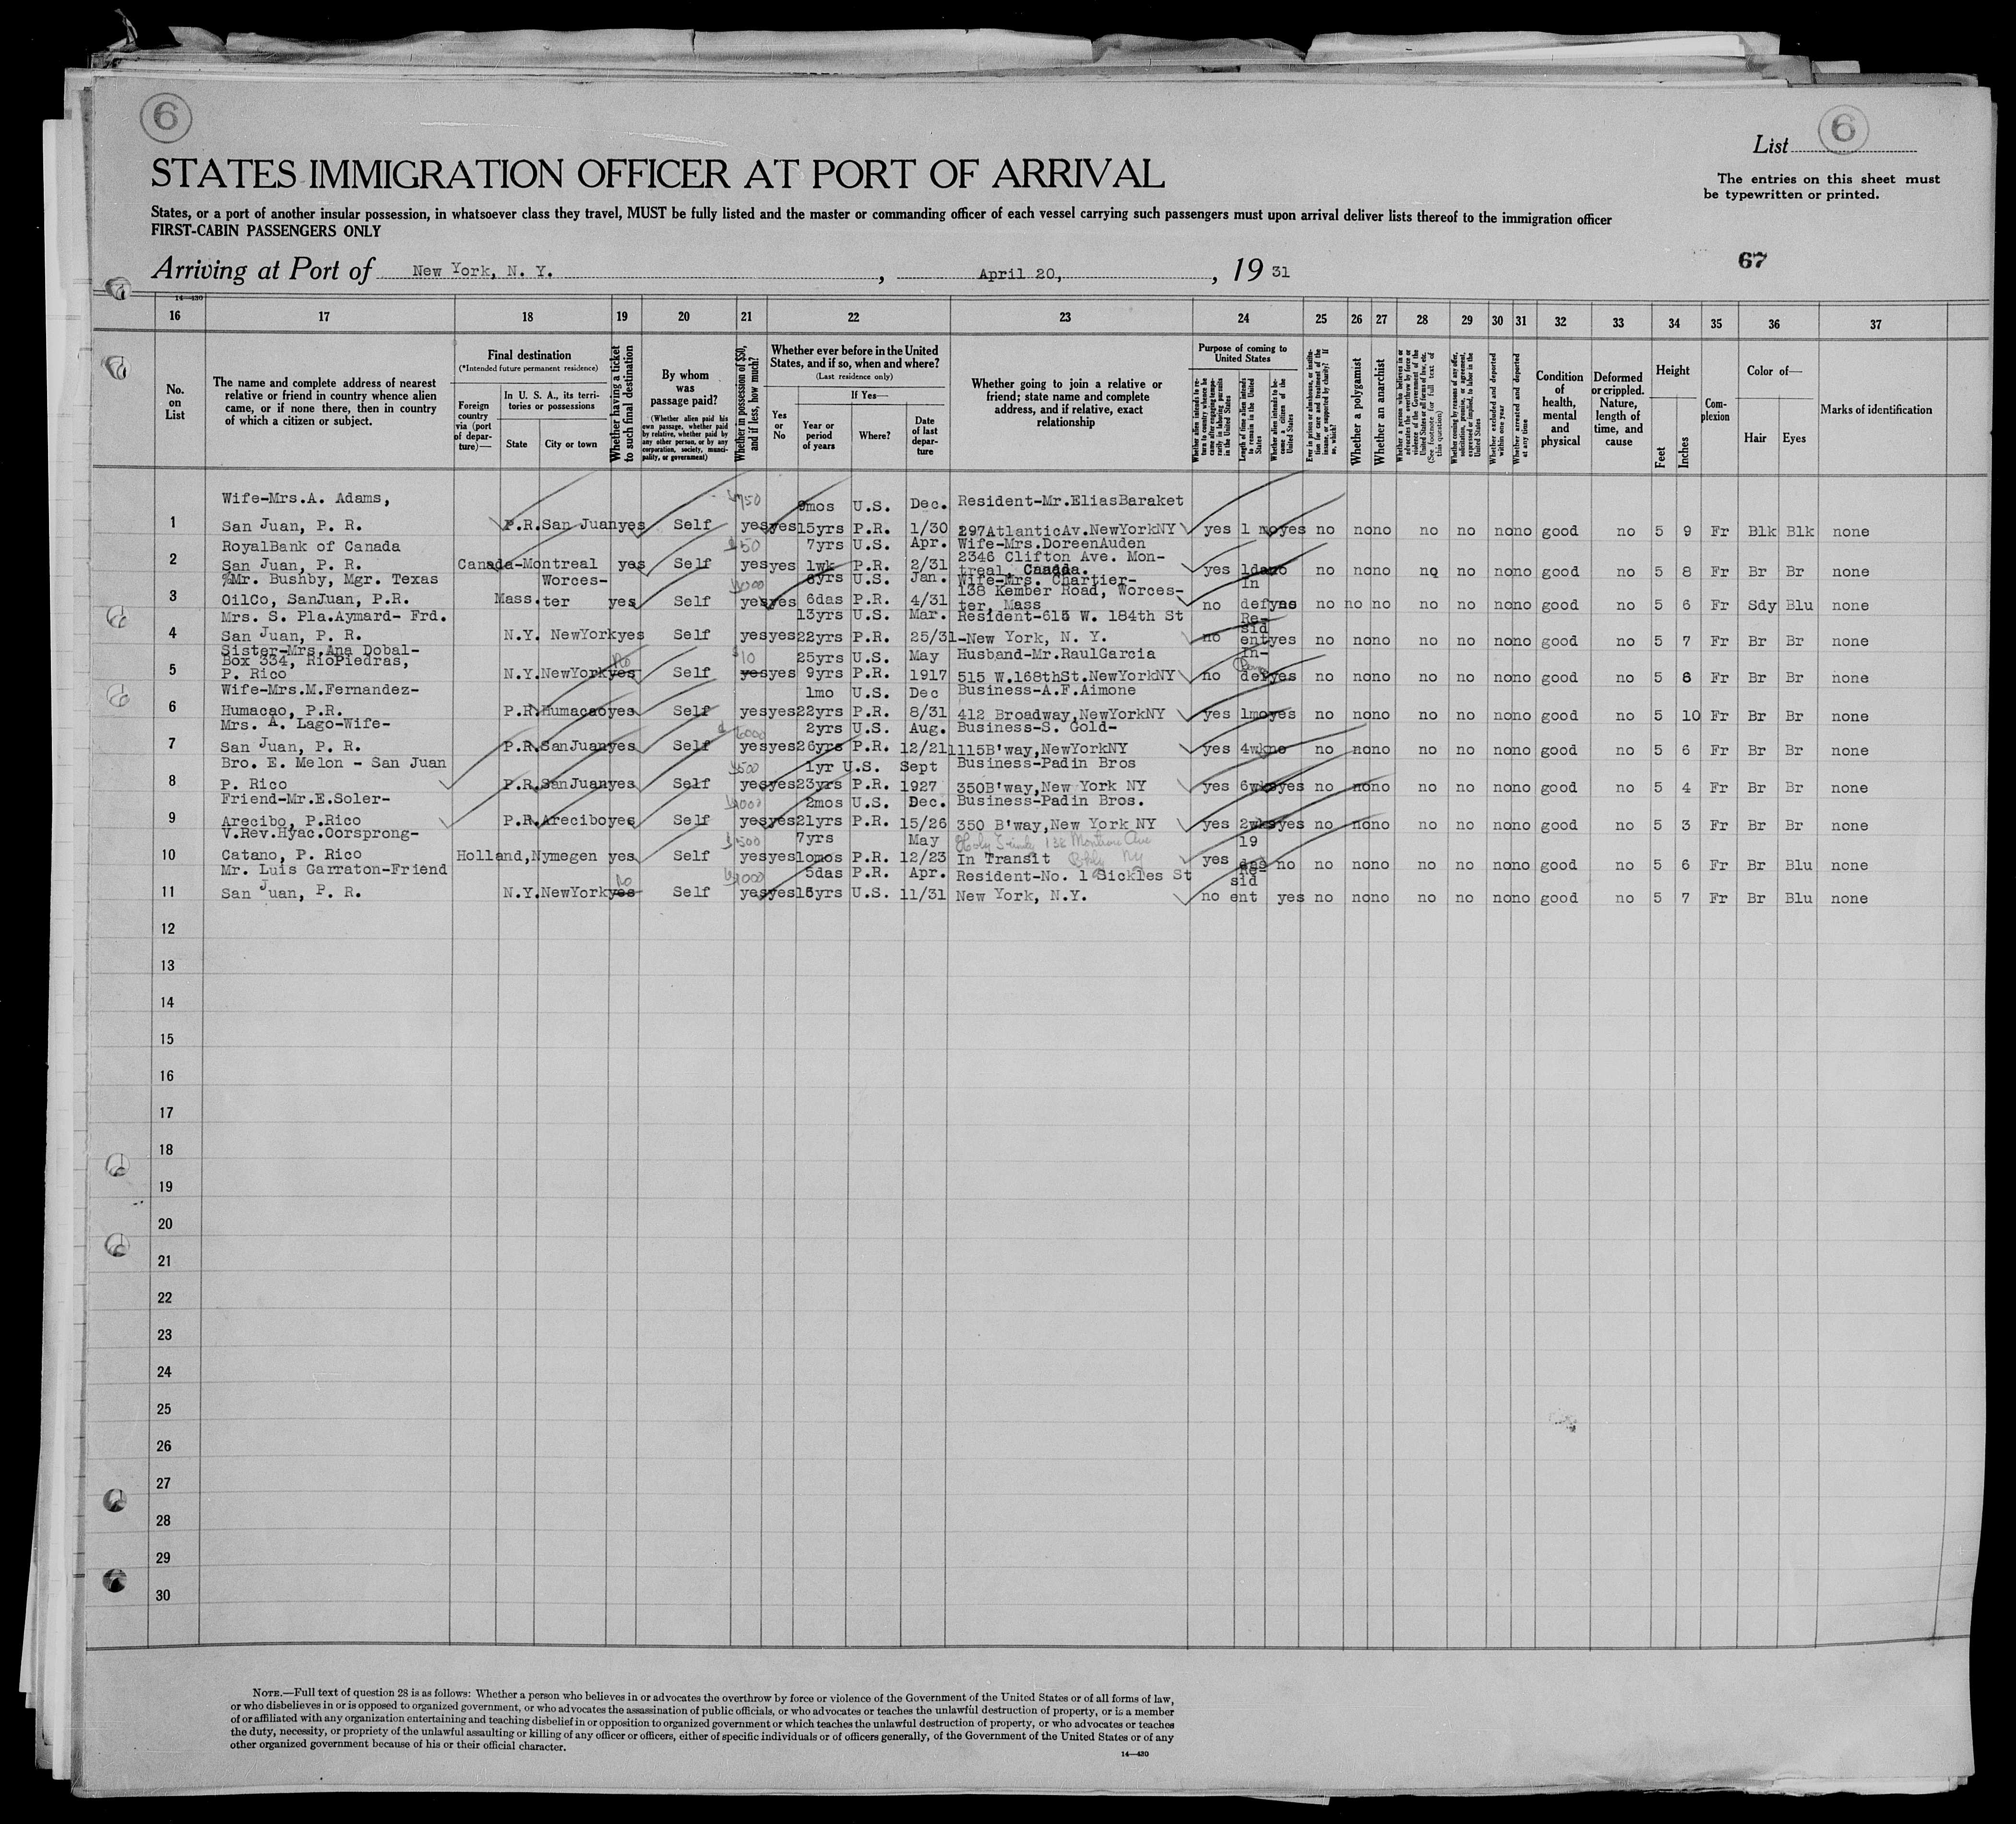 6
6
List
STATES IMMIGRATION OFFICER AT PORT OF ARRIVAL
The entries on this sheet must
be typewritten or printed.
States, or a port of another insular possession, in whatsoever class they travel, MUST be fully listed and the master or commanding officer of each vessel carrying such passengers must upon arrival deliver lists thereof to the immigration officer
FIRST-CABIN PASSENGERS ONLY
Arriving at Port of New York, N. Y. , April 20, , 19 31
67
14—430
16 17 18 19 20 21 22 23 24 25 26 27 28 29 30 31 32 33 34 35 36 37
No. on List
The name and complete address of nearest relative or friend in country whence alien came, or if none there, then in country of which a citizen or subject.
Final destination
(*Intended future permanent residence)
Foreign country via (port of departure)—
In U. S. A., its territories or possessions
State
City or town
Whether having a ticket to such final destination
By whom was passage paid?
(Whether alien paid his own passage, whether paid by relative, whether paid by any other person, or by any corporation, society, municipality, or government)
Whether in possession of $50, and if less, how much?
Whether ever before in the United States, and if so, when and where?
(Last residence only)
Yes or No
If Yes—
Year or period of years
Where?
Date of last departure
Whether going to join a relative or friend; state name and complete address, and if relative, exact relationship
Purpose of coming to United States
Whether alien intends to return to country whence he came after engaging temporarily in laboring pursuits in the United States
Length of time alien intends to remain in the United States
Whether alien intends to become a citizen of the United States
Ever in prison or almshouse, or institution for care and treatment of the insane, or supported by charity? If so, which?
Whether a polygamist
Whether an anarchist
Whether a person who believes in or advocates the overthrow by force or violence of the Government of the United States or all forms of law, etc. (See footnote for full text of this question)
Whether coming by reason of any offer, solicitation, promise, or agreement, expressed or implied, to labor in the United States
Whether excluded and deported within one year
Whether arrested and deported at any time
Condition of health, mental and physical
Deformed or crippled. Nature, length of time, and cause
Height
Feet
Inches
Complexion
Color of—
Hair
Eyes
Marks of identification
Wife-Mrs.A. Adams, $750 9mos U.S. Dec. Resident-Mr.EliasBaraket
1 San Juan, P. R. P.R. San Juan yes Self yes yes 15yrs P.R. 1/30 297AtlanticAv.NewYorkNY yes 1 mo yes no no no no no no no good no 5 9 Fr Blk Blk none
RoyalBank of Canada $50 7yrs U.S. Apr. Wife-Mrs.DoreenAuden
2 San Juan, P. R. Canada-Montreal yes Self yes yes 1wk P.R. 2/31 2346 Clifton Ave. Mon-
treal, Canada. yes 1da no no no no no no no no good no 5 8 Fr Br Br none
%Mr. Bushby, Mgr. Texas Worces- 6yrs U.S. Jan. Wife-Mrs. Chartier- In
3 OilCo, SanJuan, P.R. Mass. ter yes Self yes yes 6das P.R. 4/31 138 Kember Road, Worces-
ter, Mass no def yes no no no no no no no good no 5 6 Fr Sdy Blu none
Mrs. S. Pla.Aymard- Frd. 13yrs U.S. Mar. Resident-615 W. 184th St Re-
4 San Juan, P. R. N.Y. NewYork yes Self yes yes 22yrs P.R. 25/31 -New York, N. Y. no sid ent yes no no no no no no no good no 5 7 Fr Br Br none
Sister-Mrs.Ana Dobal-
Box 334, RioPiedras, No $10 25yrs U.S. May Husband-Mr.RaulGarcia In-
5 P. Rico N.Y. NewYork yes Self yes yes 9yrs P.R. 1917 515 W.168thSt.NewYorkNY no def yes no no no no no no no good no 5 8 Fr Br Br none
Wife-Mrs.M.Fernandez- 1mo U.S. Dec Business-A.F.Aimone
6 Humacao, P.R. P.R. Humacao yes Self yes yes 22yrs P.R. 8/31 412 Broadway,NewYorkNY yes 1mo yes no no no no no no no good no 5 10 Fr Br Br none
Mrs. A. Lago-Wife- 2yrs U.S. Aug. Business-S. Gold-
7 San Juan, P. R. P.R. SanJuan yes Self yes yes 26yrs P.R. 12/21 1115B'way,NewYorkNY yes 4wk no no no no no no no no good no 5 6 Fr Br Br none
Bro. E. Melon - San Juan $500 1yr U.S. Sept Business-Padin Bros
8 P. Rico P.R. SanJuan yes Self yes yes 23yrs P.R. 1927 350B'way,New York NY yes 6wks yes no no no no no no no good no 5 4 Fr Br Br none
Friend-Mr.E.Soler- 2mos U.S. Dec. Business-Padin Bros.
9 Arecibo, P.Rico P.R. Arecibo yes Self yes yes 21yrs P.R. 15/26 350 B'way,New York NY yes 2wks yes no no no no no no no good no 5 3 Fr Br Br none
V.Rev.Hyac.Oorsprong- $500 7yrs May Holy Trinity 138 Montrose Ave 19
10 Catano, P. Rico Holland,Nymegen yes Self yes yes 10mos P.R. 12/23 In Transit Bkly NY yes das no no no no no no no no good no 5 6 Fr Br Blu none
Mr. Luis Garraton-Friend No 5das P.R. Apr. Resident-No. 1 Sickles St Re-
sid
11 San Juan, P. R. N.Y. NewYork yes Self yes yes 15yrs U.S. 11/31 New York, N.Y. no ent yes no no no no no no no good no 5 7 Fr Br Blu none
12
13
14
15
16
17
18
19
20
21
22
23
24
25
26
27
28
29
30
NOTE.—Full text of question 28 is as follows: Whether a person who believes in or advocates the overthrow by force or violence of the Government of the United States or of all forms of law,
or who disbelieves in or is opposed to organized government, or who advocates the assassination of public officials, or who advocates or teaches the unlawful destruction of property, or is a member
of or affiliated with any organization entertaining and teaching disbelief in or opposition to organized government or which teaches the unlawful destruction of property, or who advocates or teaches
the duty, necessity, or propriety of the unlawful assaulting or killing of any officer or officers, either of specific individuals or of officers generally, of the Government of the United States or of any
other organized government because of his or their official character.
14—430